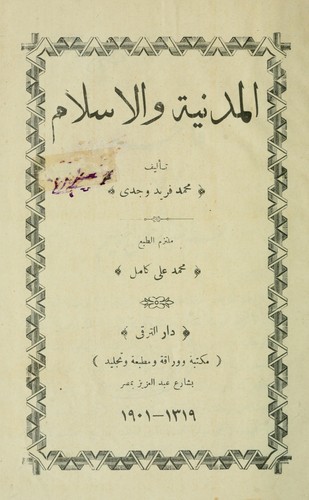 المدنية والاسلام
تأليف
﴿ محمد فريد وجدى ﴾
ملتزم الطبع
﴿ محمد على كامل ﴾
﴿ دار الترقى ﴾
( مكتبة ووراقة ومطبعة وتجليد )
بشارع عبد العزيز بمصر
١٣١٩ - ١٩٠١